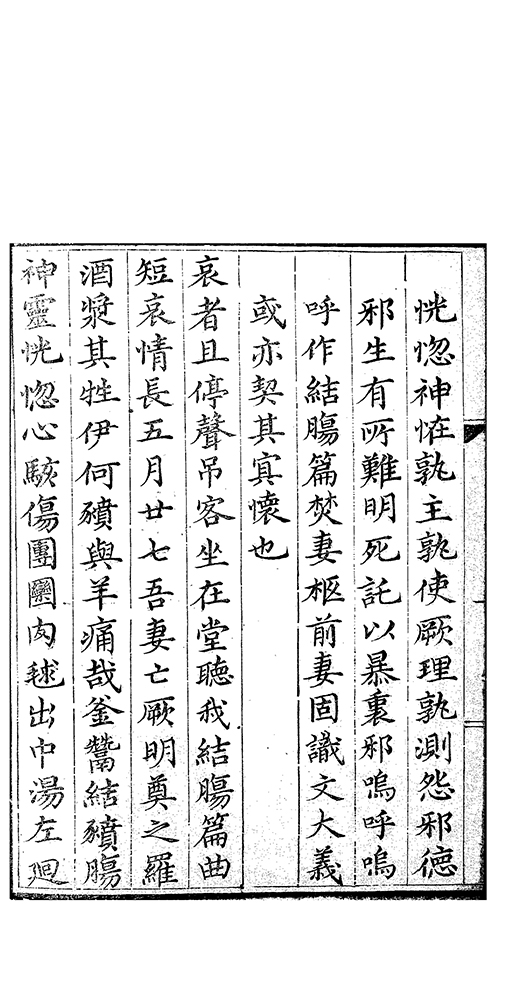 恍惚神怪孰主孰使厥理孰測怨邪德
邪生有所難明死託以暴裏邪嗚呼嗚
呼作結腸篇焚妻柩前妻固識文大義
或亦契其寘懷也
哀者且停聲吊客坐在堂聽我結腸篇曲
短哀情長五月廿七吾妻亡厥明奠之羅
酒漿其牲伊何豶與羊痛哉釜鬵結豶腸
神靈恍惚心駭傷團圞肉毬出中湯左迴